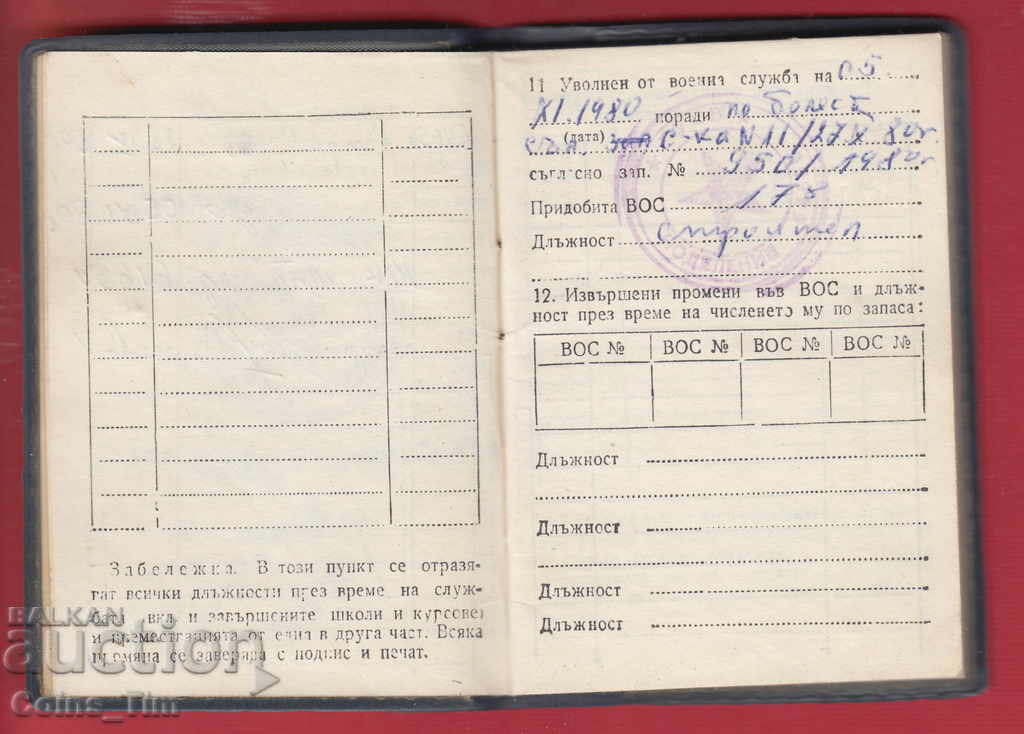 Забележка. В този пункт се отразя-
ват всички длъжности през време на служ-
бата вкл. и завършените школи и курсове
и преместванията от една в друга част. Всяка
промяна се заверява с подпис и печат.
11 Уволнен от военна служба на 05
XI. 1980 поради по болест
(дата) С-ка N 11/27 X 80г.
съгласно зап. № 950/1980г
Придобита ВОС 175
Длъжност строител
12. Извършени промени във ВОС и длъж-
ност през време на численето му по запаса:
ВОС № ВОС № ВОС № ВОС №
Длъжност
Длъжност
Длъжност
Длъжност
BALKAN
auction
Coins_Tim